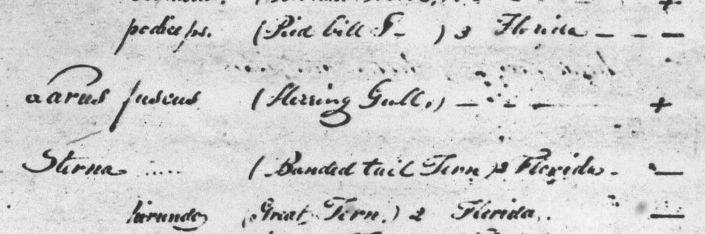 podiceps. (Pied bill T- ) 3 Florida - - -
Larus fuscus (Herring Gull,) - - - - +
Sterna ..... (Banded tail Tern) 2 Florida - -
hirundo (Great Tern.) 2 Florida. -